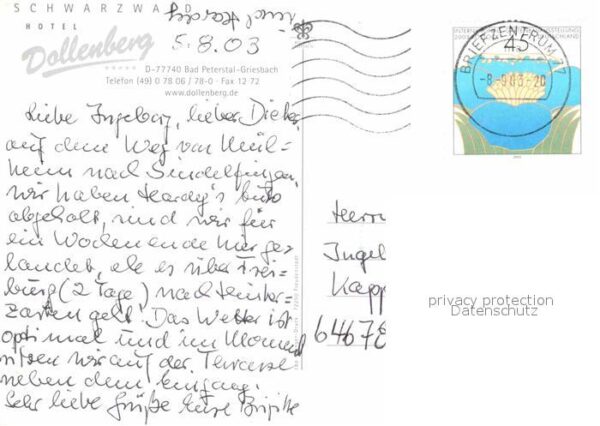 SCHWARZWALD
HOTEL
Dollenberg
D-77740 Bad Peterstal-Griesbach
Telefon (49) 0 78 06 / 78-0 · Fax 12 72
www.dollenberg.de
und Hardy
5.8.03
Liebe Ingeborg, lieber Dieter,
auf dem Weg von Mül-
heim nach Sindelfingen,
wir haben Hardy's Auto
abgeholt, sind wir für
ein Wochenende hier ge-
landet, ehe es über Frei-
burg (2 Tage) nach Hinter-
zarten geht! Das Wetter ist
optimal und im Moment
sitzen wir auf der Terrasse
neben dem Eingang.
Sehr liebe Grüße Eure Brigitte
45
BRIEFZENTRUM 77
-8.-9.03-20
Herrn
Ingel
Kapp
64678
privacy protection
Datenschutz